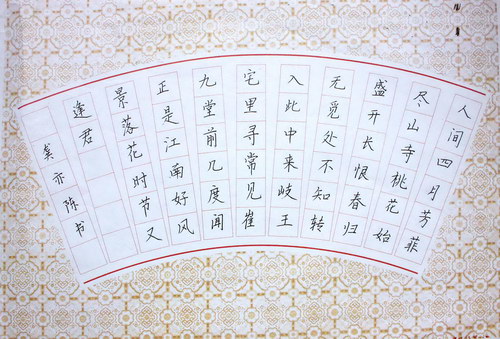 人间四月芳菲
尽山寺桃花始
盛开长恨春归
无觅处不知转
入此中来岐王
宅里寻常见崔
九堂前几度闻
正是江南好风
景落花时节又
逢君
龚亦陈书